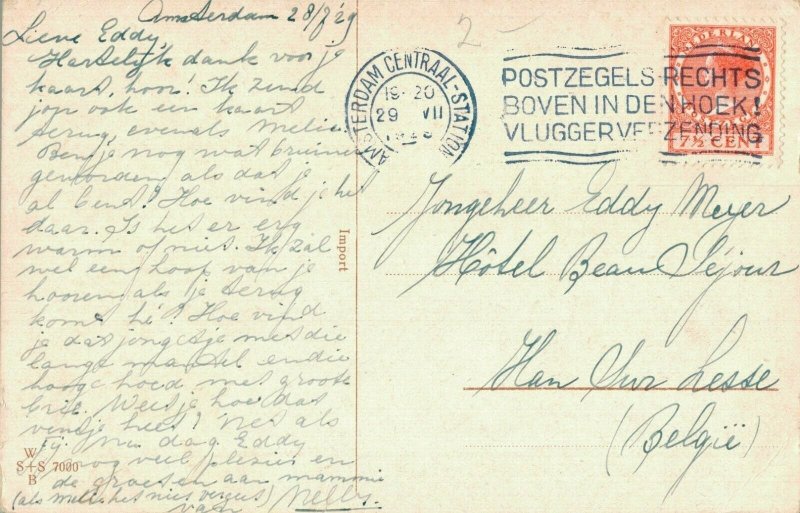 Amsterdam 28/7 '29
Lieve Eddy
Hartelijk dank voor je
kaart, hoor! Ik zend
jou ook een kaart
terug, evenals Melie.
Ben je nog wat bruiner
geworden als dat je
al bent? Hoe vind je het
daar. Is het er erg
warm of niet. Ik zal
wel een hoop van je
hooren als je terug
komt hè? Hoe vind
je dat jongetje met die
lange mantel en die
hooge hoed met groote
bril. Weet je hoe dat
ventje heet? Net als
jij. Nu dag Eddy
nog veel plezier en
de groeten aan mammie
(als Melie het niet vergeet)
van Nelly.
2-
AMSTERDAM CENTRAAL-STATION
19-20
29 VII
POSTZEGELS RECHTS
BOVEN IN DEN HOEK!
VLUGGER VERZENDING
NEDERLAND
7½ CENT
Import
Jongeheer Eddy Meyer
Hôtel Beau Séjour
Han Sur Lesse
(België)
W
S+S 7000
B